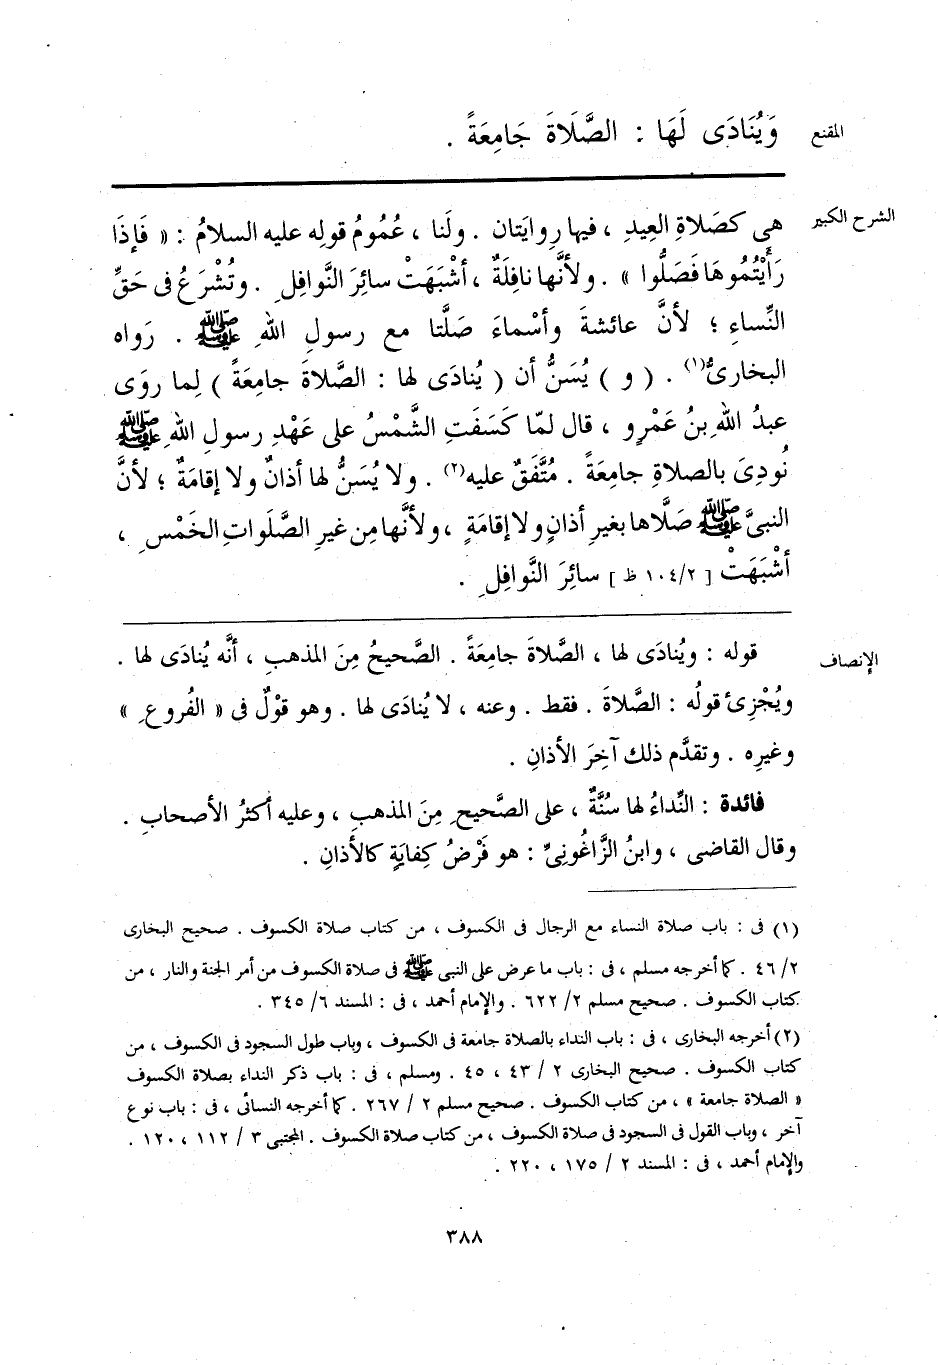 المقنع
وَيُنَادَى لَهَا : الصَّلَاةَ جَامِعَةً .
الشرح الكبير
هى كصَلاةِ العِيدِ ، فيها رِوايَتان . ولَنا ، عُمُومُ قولِه عليه السلامُ : « فَإِذَا
رَأَيْتُمُوهَا فَصَلُّوا » . ولأنَّها نافِلَةٌ ، أشْبَهَتْ سائِرَ النَّوافِلِ . وتُشْرَعُ فى حَقِّ
النِّساءِ ؛ لأنَّ عائشةَ وأسْماءَ صَلَّتا مع رسولِ اللهِ ﷺ . رَواه
البخارىُّ(١) . ( و ) يُسَنُّ أن ( يُنادَى لها : الصَّلاةَ جامِعَةً ) لِما روَى
عبدُ اللهِ بنُ عَمْرٍو ، قال لمّا كَسَفَتِ الشَّمْسُ على عَهْدِ رسولِ اللهِ ﷺ
نُودِىَ بالصلاةِ جامِعَةً . مُتَّفَقٌ عليه(٢) . ولا يُسَنُّ لها أذانٌ ولا إقامَةٌ ؛ لأنَّ
النبىَّ ﷺ صَلَّاها بغيرِ أذانٍ ولا إقامَةٍ ، ولأنَّها مِن غيرِ الصَّلَواتِ الخَمْسِ ،
أشْبَهَتْ [ ١٠٤/٢ ظ ] سائِرَ النَّوافِلِ .
الإنصاف
قوله : ويُنادَى لها ، الصَّلاةَ جامِعَةً . الصَّحيحُ مِنَ المذهبِ ، أنَّه يُنادَى لها .
ويُجْزِئُ قولُه : الصَّلاةَ . فقط . وعنه ، لا يُنادَى لها . وهو قوْلٌ فى « الفُروعِ »
وغيرِه . وتقدَّم ذلك آخِرَ الأذانِ .
فائدة : النِّداءُ لها سُنَّةٌ ، على الصَّحيحِ مِنَ المذهبِ ، وعليه أكثرُ الأصحابِ .
وقال القاضى ، وابنُ الزَّاغُونِىِّ : هو فَرْضُ كِفايَةٍ كالأذانِ .
(١) فى : باب صلاة النساء مع الرجال فى الكسوف ، من كتاب صلاة الكسوف . صحيح البخارى
٤٦/٢ . كما أخرجه مسلم ، فى : باب ما عرض على النبى ﷺ فى صلاة الكسوف من أمر الجنة والنار ، من
كتاب الكسوف . صحيح مسلم ٢/ ٦٢٢ . والإمام أحمد ، فى : المسند ٦/ ٣٤٥ .
(٢) أخرجه البخارى ، فى : باب النداء بالصلاة جامعة فى الكسوف ، وباب طول السجود فى الكسوف ، من
كتاب الكسوف . صحيح البخارى ٢ / ٤٣ ، ٤٥ . ومسلم ، فى : باب ذكر النداء بصلاة الكسوف
« الصلاة جامعة » ، من كتاب الكسوف . صحيح مسلم ٢ / ٢٦٧ . كما أخرجه النسائى ، فى : باب نوع
آخر ، وباب القول فى السجود فى صلاة الكسوف ، من كتاب صلاة الكسوف . المجتبى ٣ / ١١٢ ، ١٢٠ .
والإمام أحمد ، فى : المسند ٢ / ١٧٥ ، ٢٢٠ .
٣٨٨